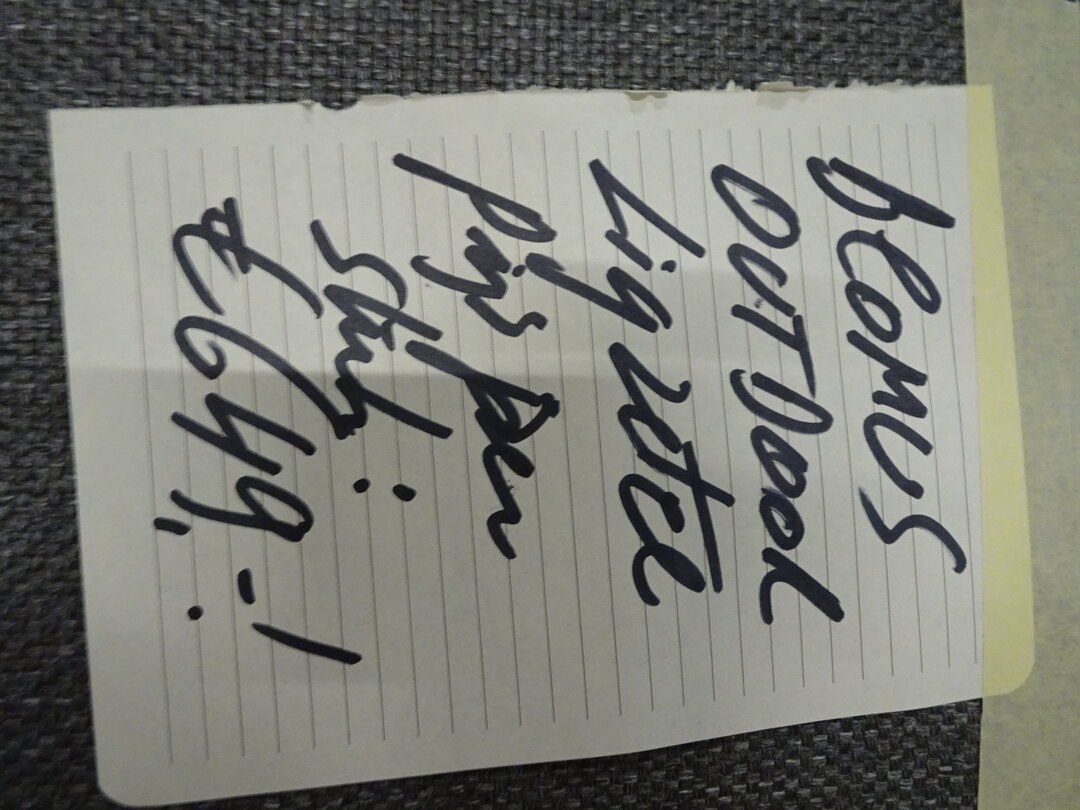 BLOMUS
OUTDOOR
Lig zetel
prijs per
stuk:
€ 649,-!